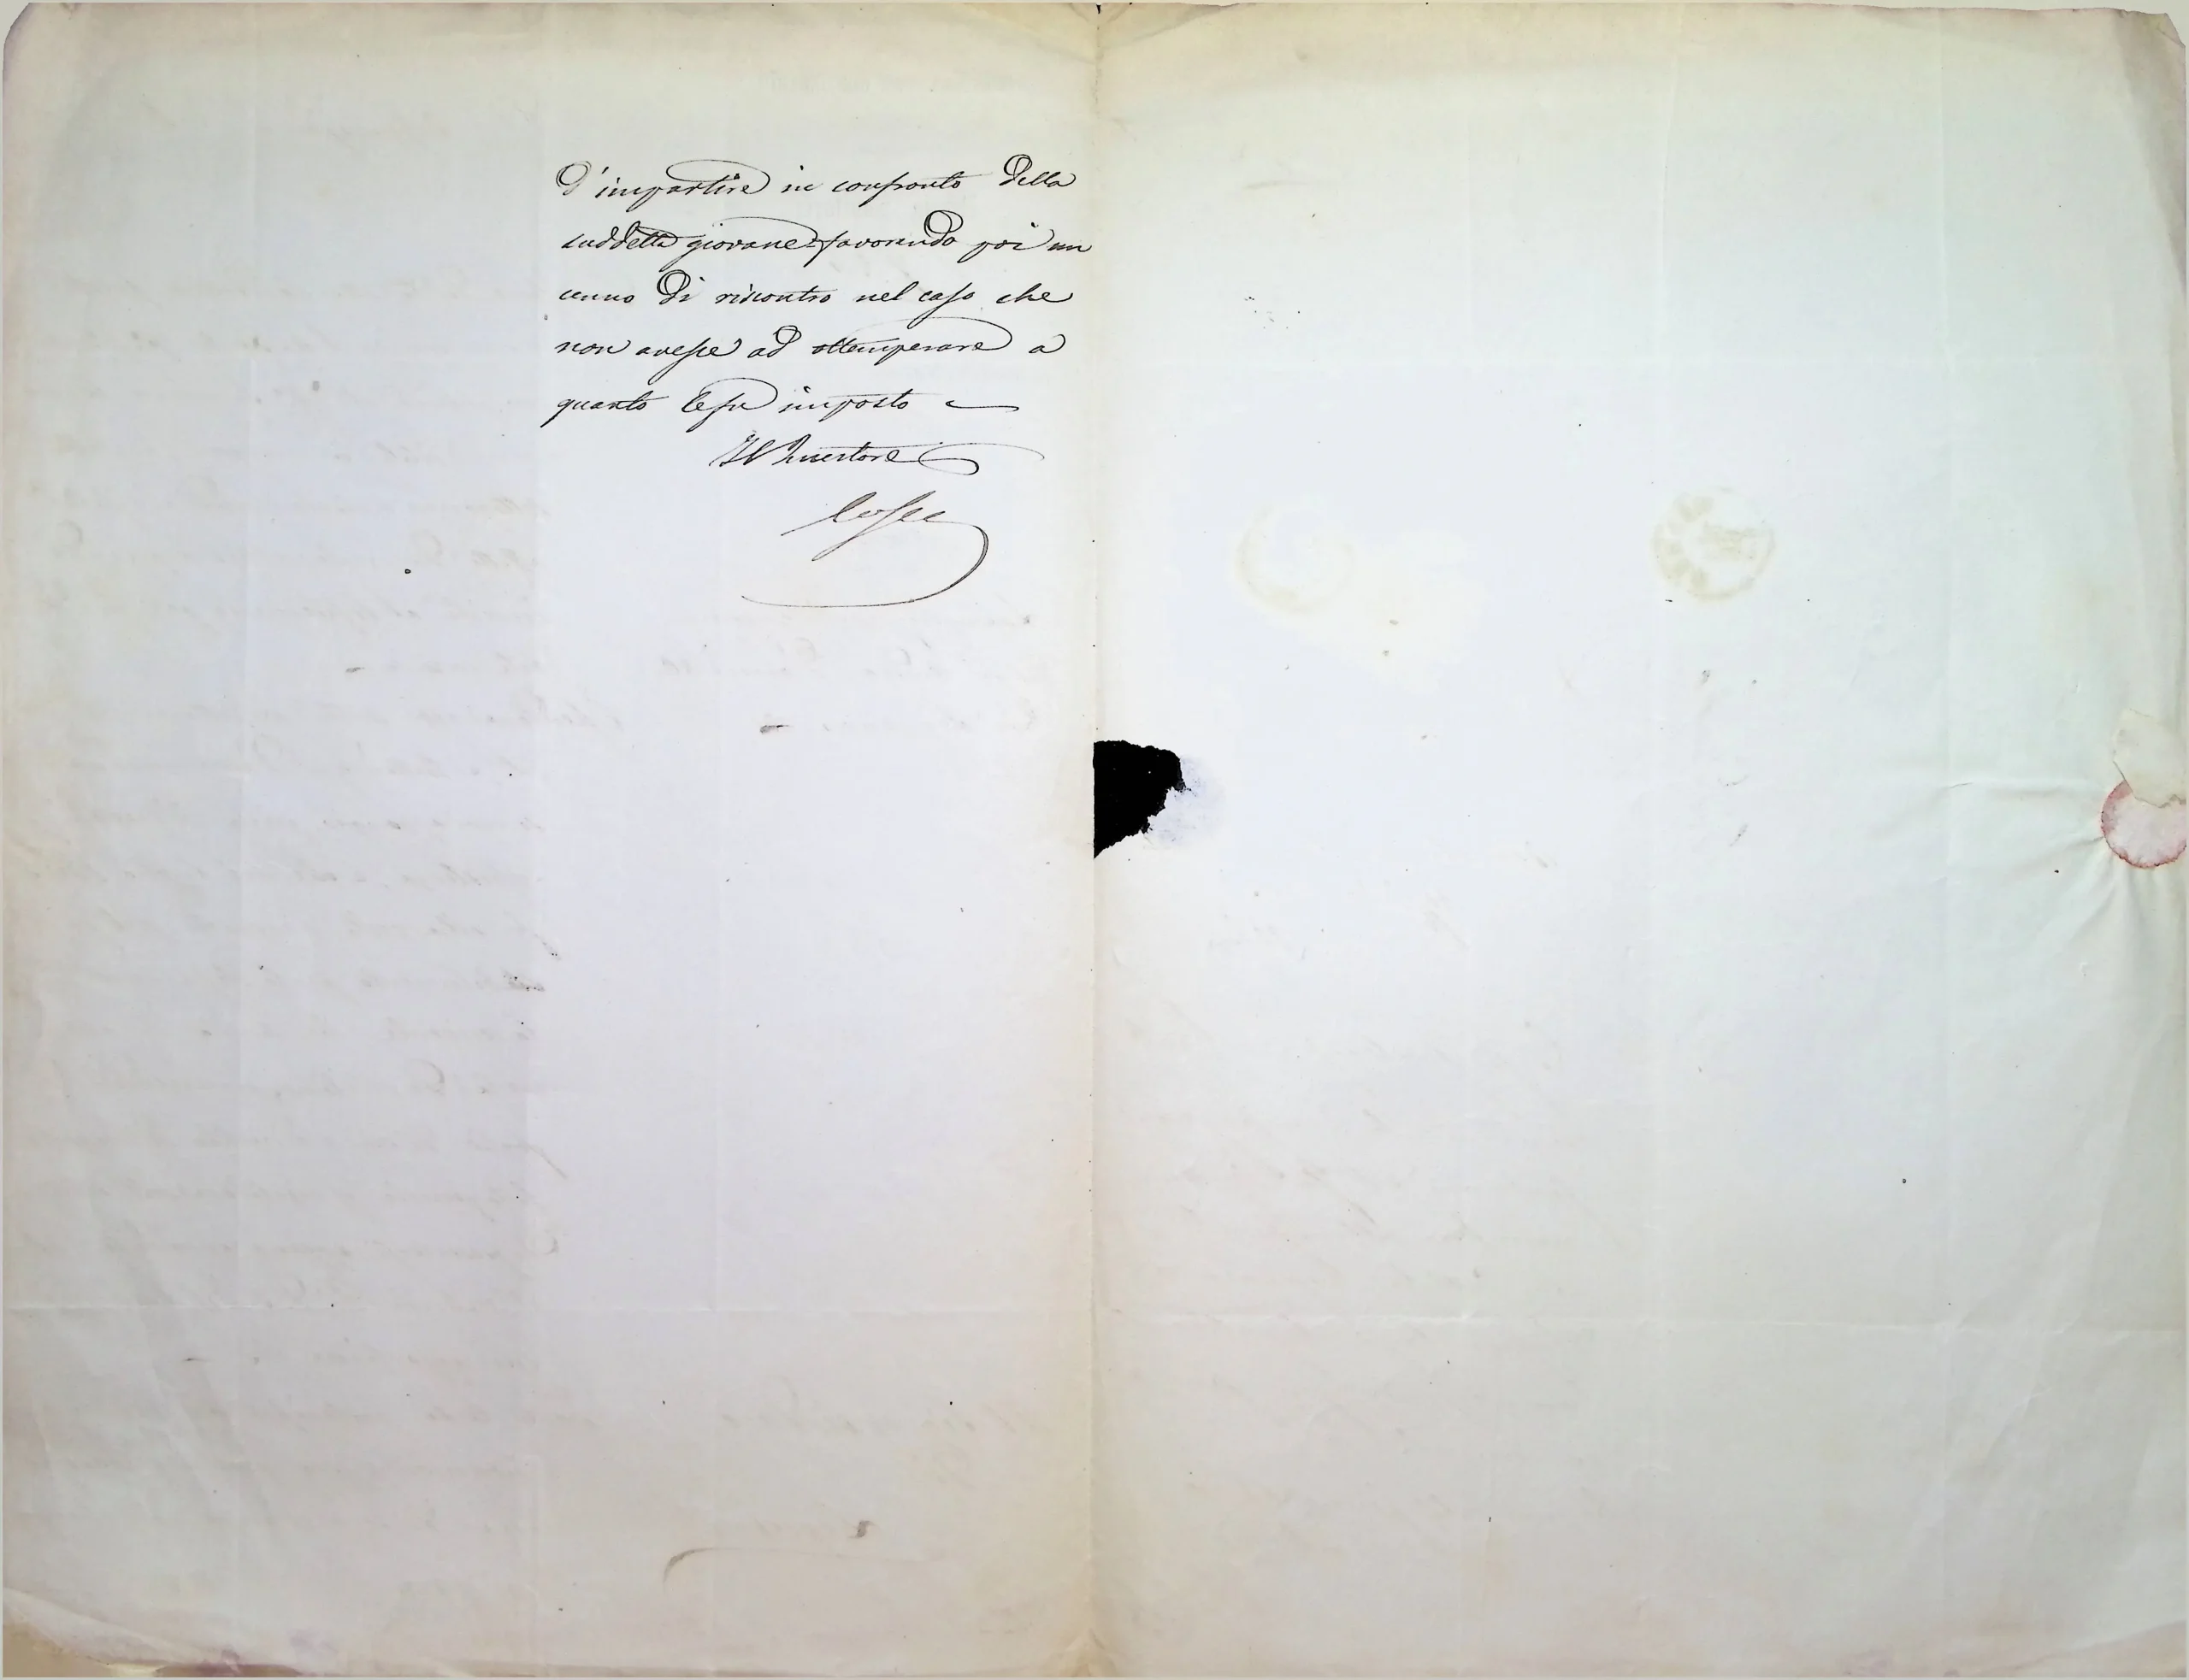 d'impartire in confronto della
suddetta giovane favorendo poi un
cenno di riscontro nel caso che
non avesse ad ottemperare a
quanto le fu imposto
Il Questore